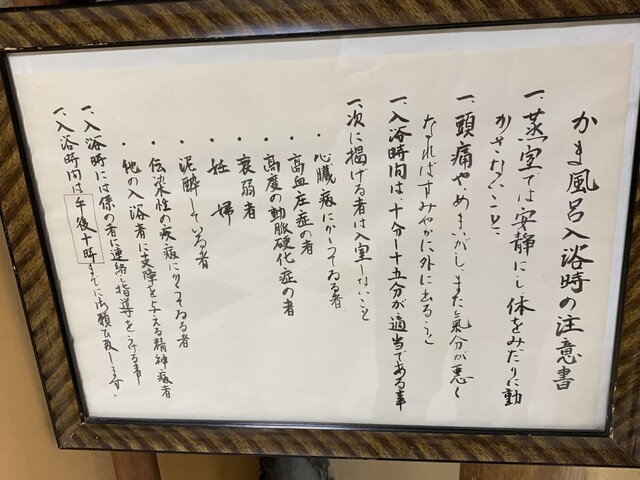 かま風呂入浴時の注意書
一、蒸室では安静にし体をみだりに動
かさないこと、
一、頭痛や、めまいがし、また氣分が悪く
なればすみやかに外に出ること
一、入浴時間は、十分ー十五分が適当である事
一、次に掲げる者は入室しないこと
・心臓病にかゝつてゐる者
・高血圧症の者
・高度の動脈硬化症の者
・衰弱者
・妊婦
・泥酔している者
・伝染性の疾病にかゝつてゐる者
・他の入浴者に支障を与える精神病者
一、入浴時には係の者に連絡し指導をうける事
一、入浴時間は午後十時までに御願ひ致します、